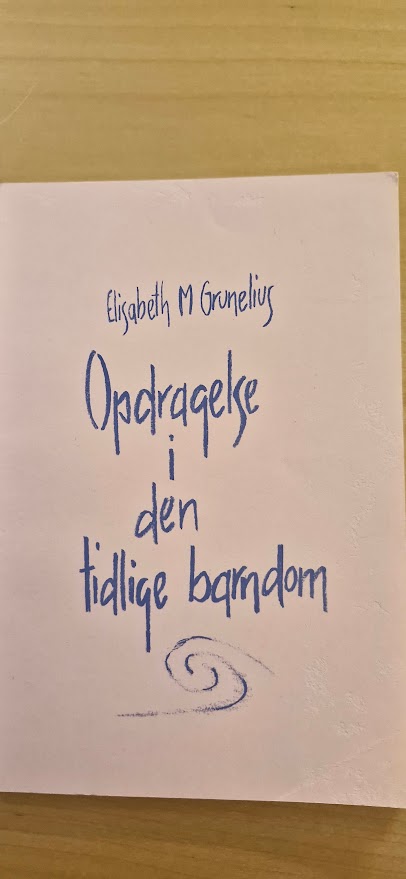 Elisabeth M Grunelius
Opdragelse
i
den
tidlige barndom